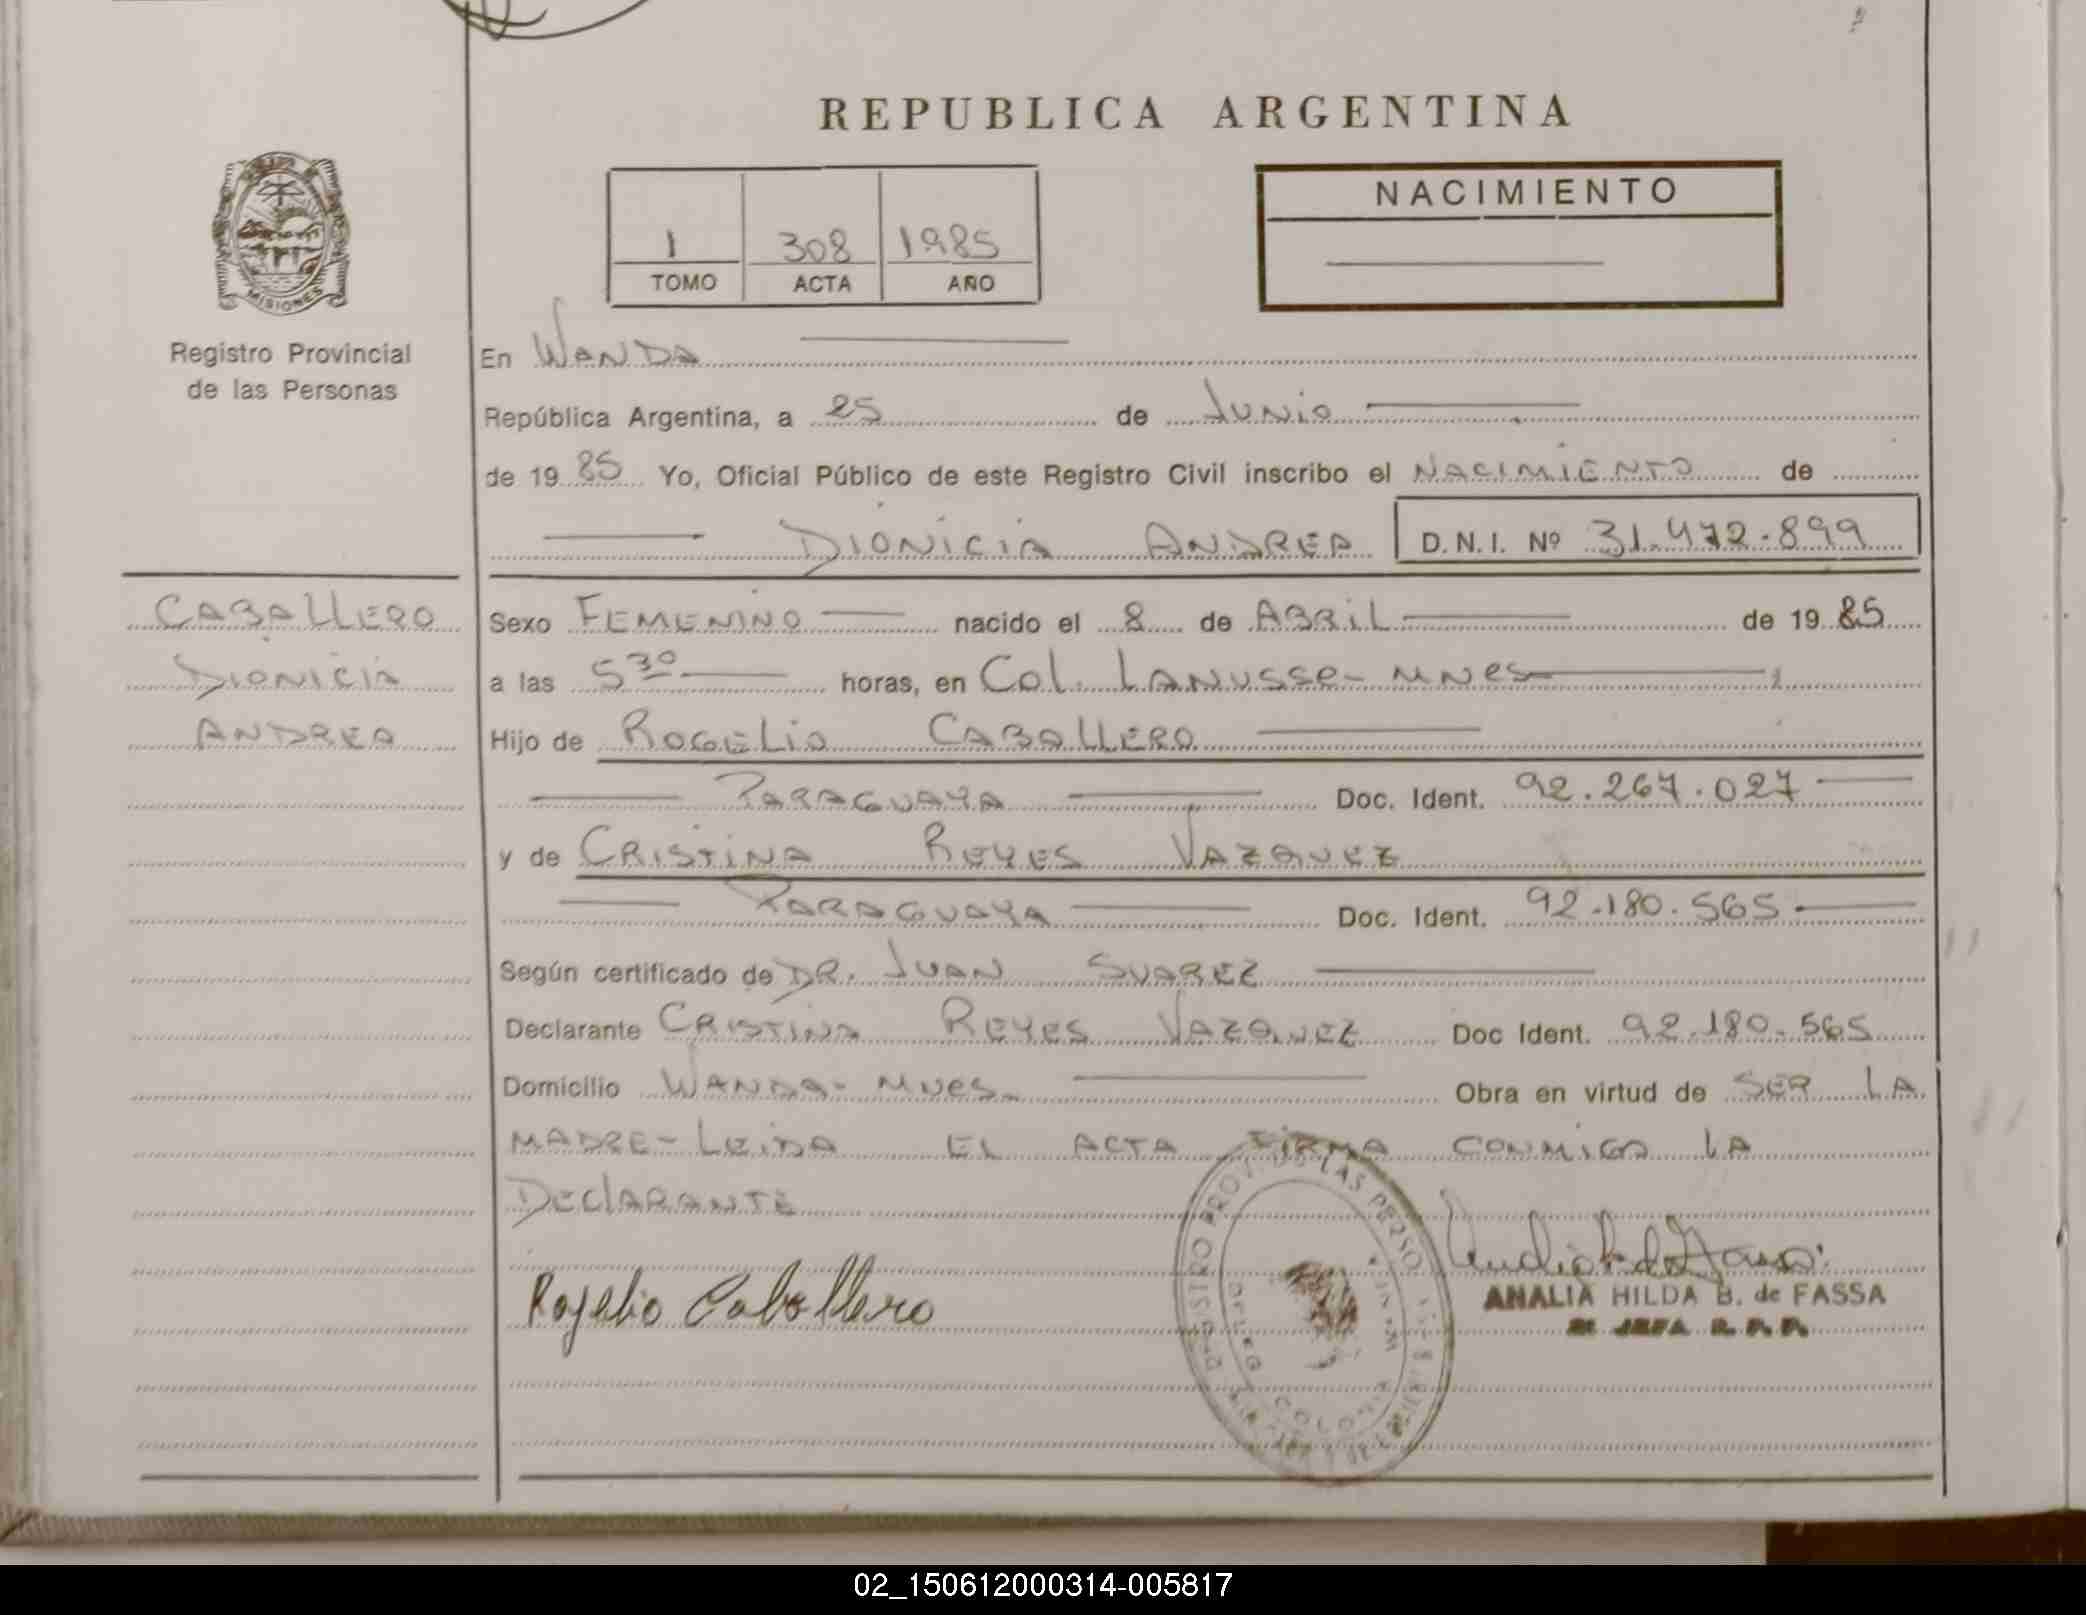 REPUBLICA ARGENTINA
MISIONES
Registro Provincial
de las Personas
1 308 1985
TOMO ACTA AÑO
NACIMIENTO
En WANDA
República Argentina, a 25 de JUNIO
de 19 85 Yo, Oficial Público de este Registro Civil inscribo el NACIMIENTO de
DIONICIA ANDREA D.N.I. Nº 31.472.899
CABALLERO
DIONICIA
ANDREA
Sexo FEMENINO nacido el 8 de ABRIL de 19 85
a las 5 30 horas, en COL. LANUSSE- MNES
Hijo de ROGELIO CABALLERO
PARAGUAYA Doc. Ident. 92.267.027
y de CRISTINA REYES VAZQUEZ
PARAGUAYA Doc. Ident. 92.180.565
Según certificado de DR. JUAN SUAREZ
Declarante CRISTINA REYES VAZQUEZ Doc Ident. 92.180.565
Domicilio WANDA- MNES Obra en virtud de SER LA
MADRE- LEIDA EL ACTA FIRMA CONMIGO LA
DECLARANTE
Rogelio Caballero
ANALIA HILDA B. de FASSA
JEFA R. P. P.
02_150612000314-005817